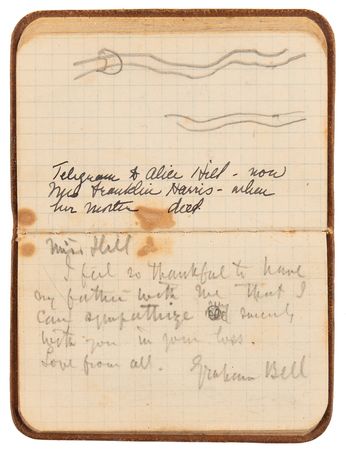 Telegram to Alice Hill - now
Mrs Franklin Harris - when
her mother died
Miss Hill
I feel so thankful to have
my father with me that I
can sympathize
with you in your loss.
Love from all.
Graham Bell